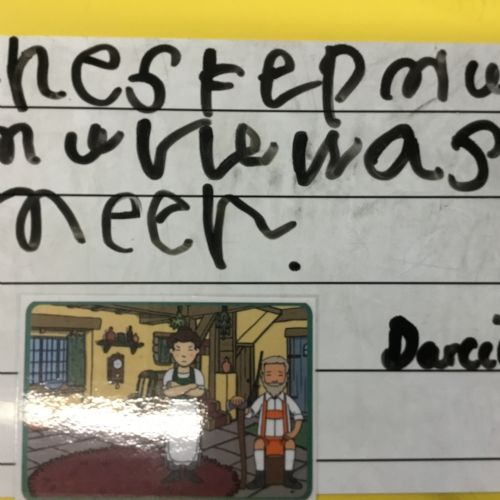 he step mu
muvre was
meen.
Darci